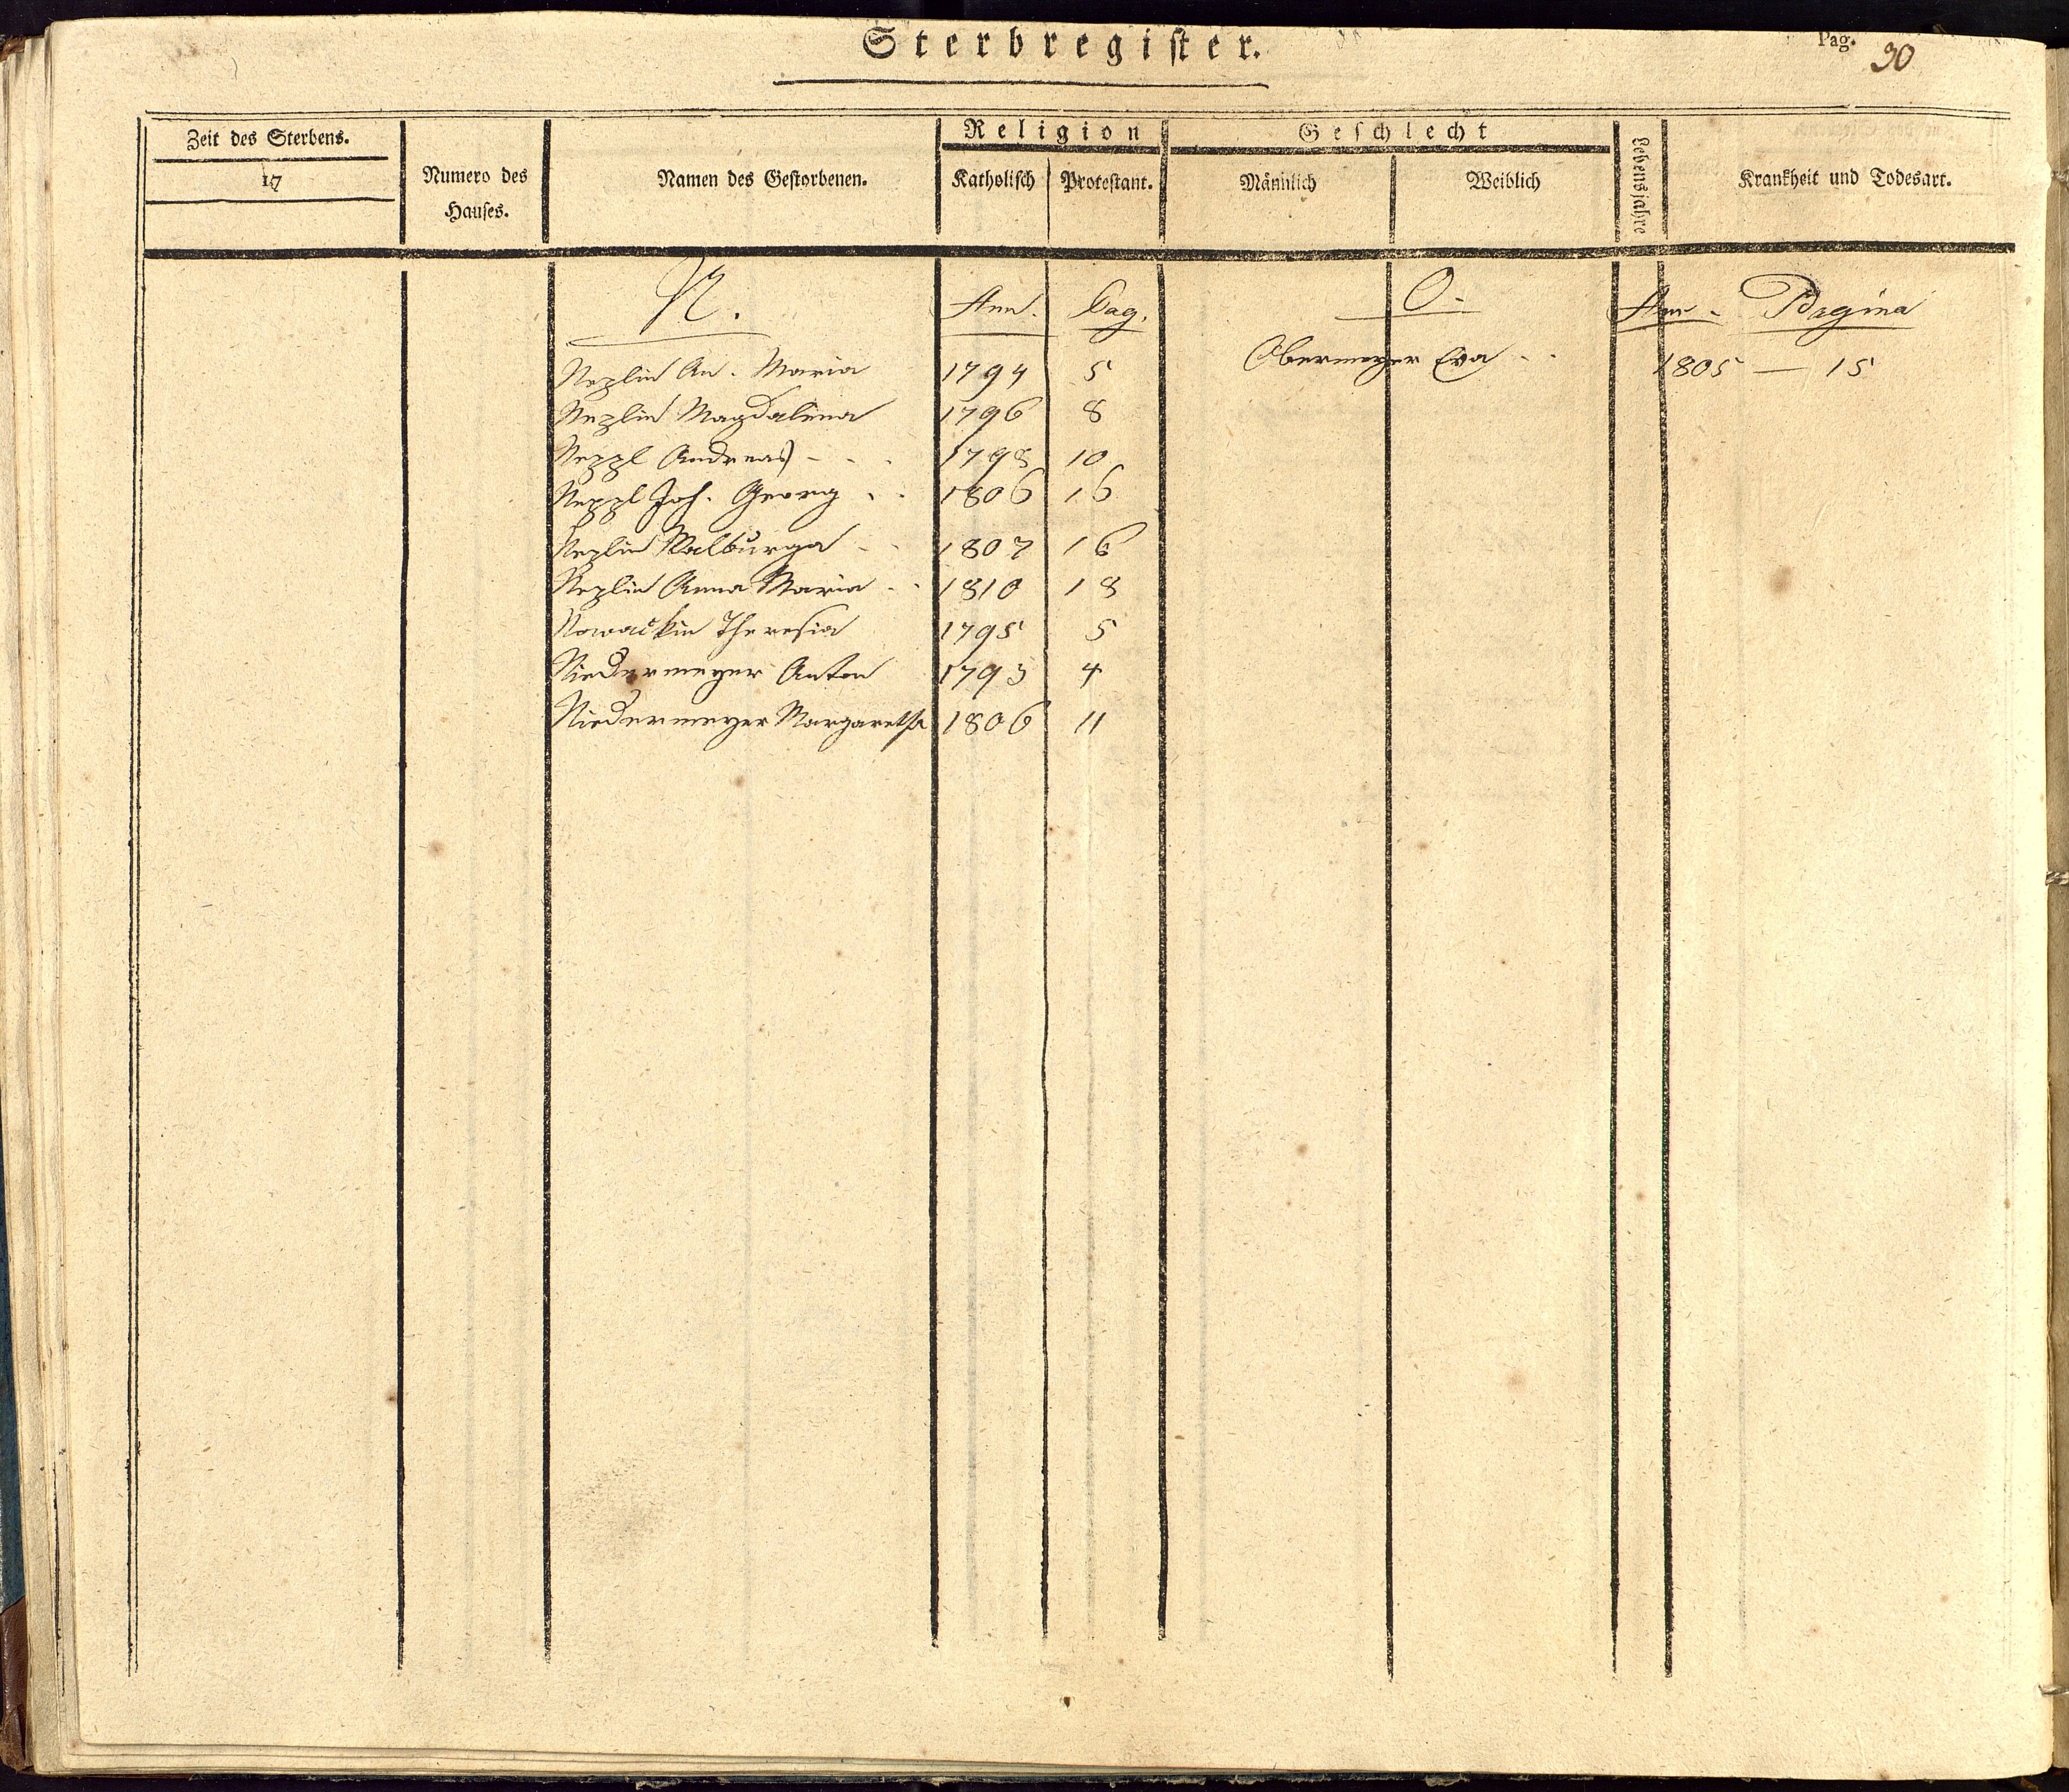 Sterbregister.
Pag. 30
Zeit des Sterbens.
17
Numero des Hauses.
Namen des Gestorbenen.
Religion
Katholisch Protestant.
Geschlecht
Männlich Weiblich
Lebensjahre
Krankheit und Todesart.
N. Ann. Pag. O. Ann. Pagina
Neplin An. Maria 1794 5 Obermeyer Eva 1805 — 15
Neplin Magdalena 1796 8
Neppl Andreas 1798 10
Neppl Joh. Georg 1806 16
Neplin Walburga 1807 16
Neplin Anna Maria 1810 18
Nowackin Theresia 1795 5
Niedermeyer Anton 1793 4
Niedermeyer Margaretha 1806 11